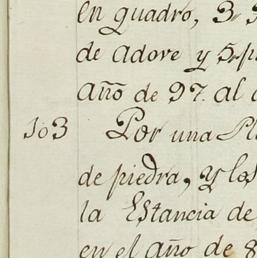 en quadro, 3
de adore y 5
año de 97. al
103 Por una
de piedra, y los
la Estancia de
en el año de 8